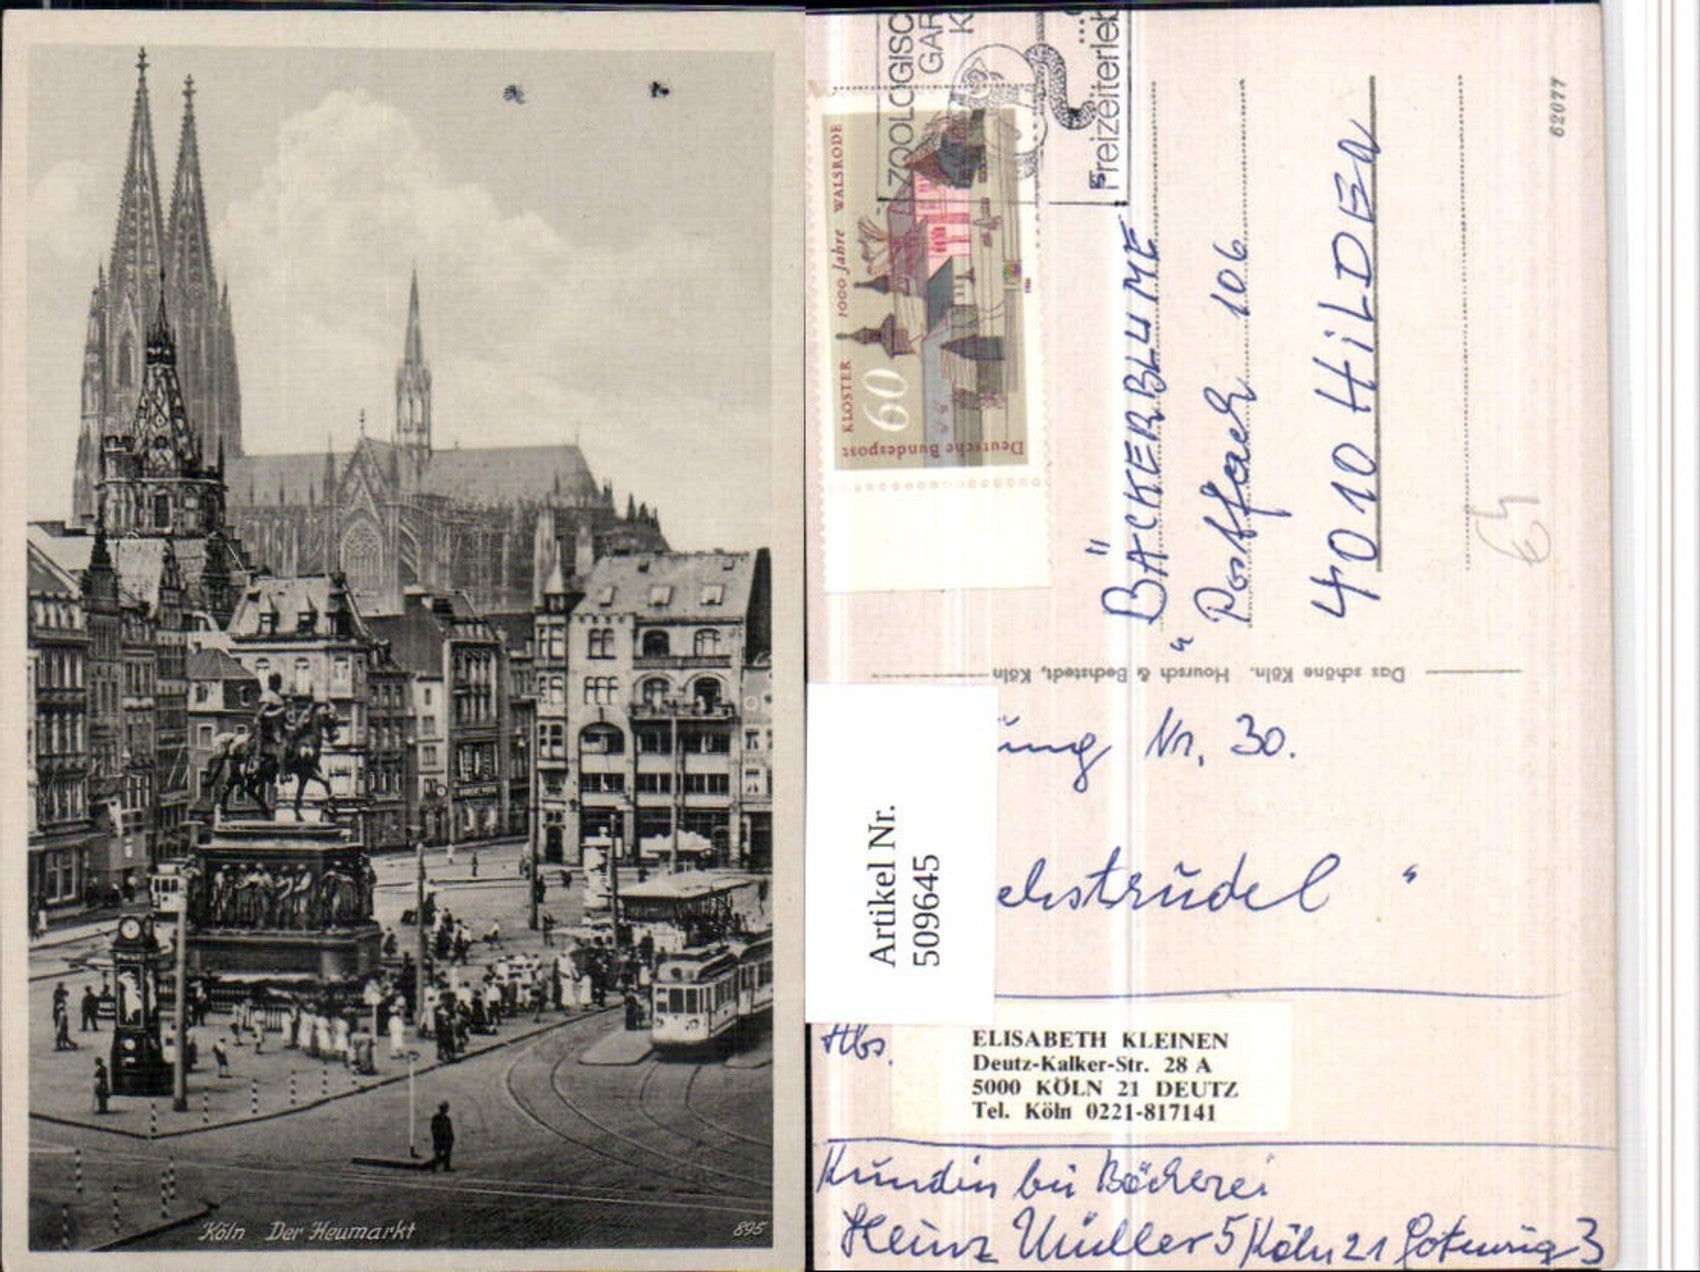 Köln Der Heumarkt
895
ZOOLOGISC
GAR
K
...
Freizeiterleb
KLOSTER 1000 Jahre WALSRODE
60
Deutsche Bundespost
62077
"BÄCKERBLUME"
Postfach 106
4010 HiLDEN
Das schöne Köln. Hoursch & Bechstedt, Köln
ung Nr. 30.
chstrudel"
Artikel Nr.
509645
Abs.
ELISABETH KLEINEN
Deutz-Kalker-Str. 28 A
5000 KÖLN 21 DEUTZ
Tel. Köln 0221-817141
Kundin bei Bäckerei
Heinz Müller 5 Köln 21 3